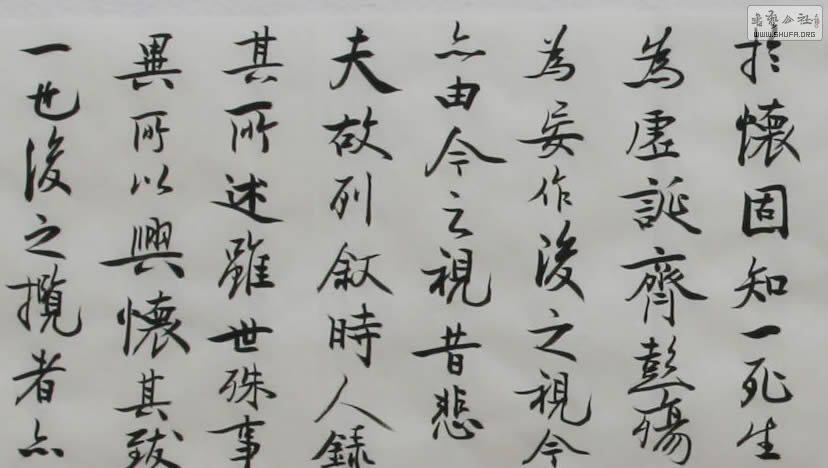 於懷固知一死生
為虛誕齊彭殤
為妄作後之視今
亦由今之視昔悲
夫故列叙時人錄
其所述雖世殊事
異所以興懷其致
一也後之攬者亦
書藝公社
WWW.SHUFA.ORG